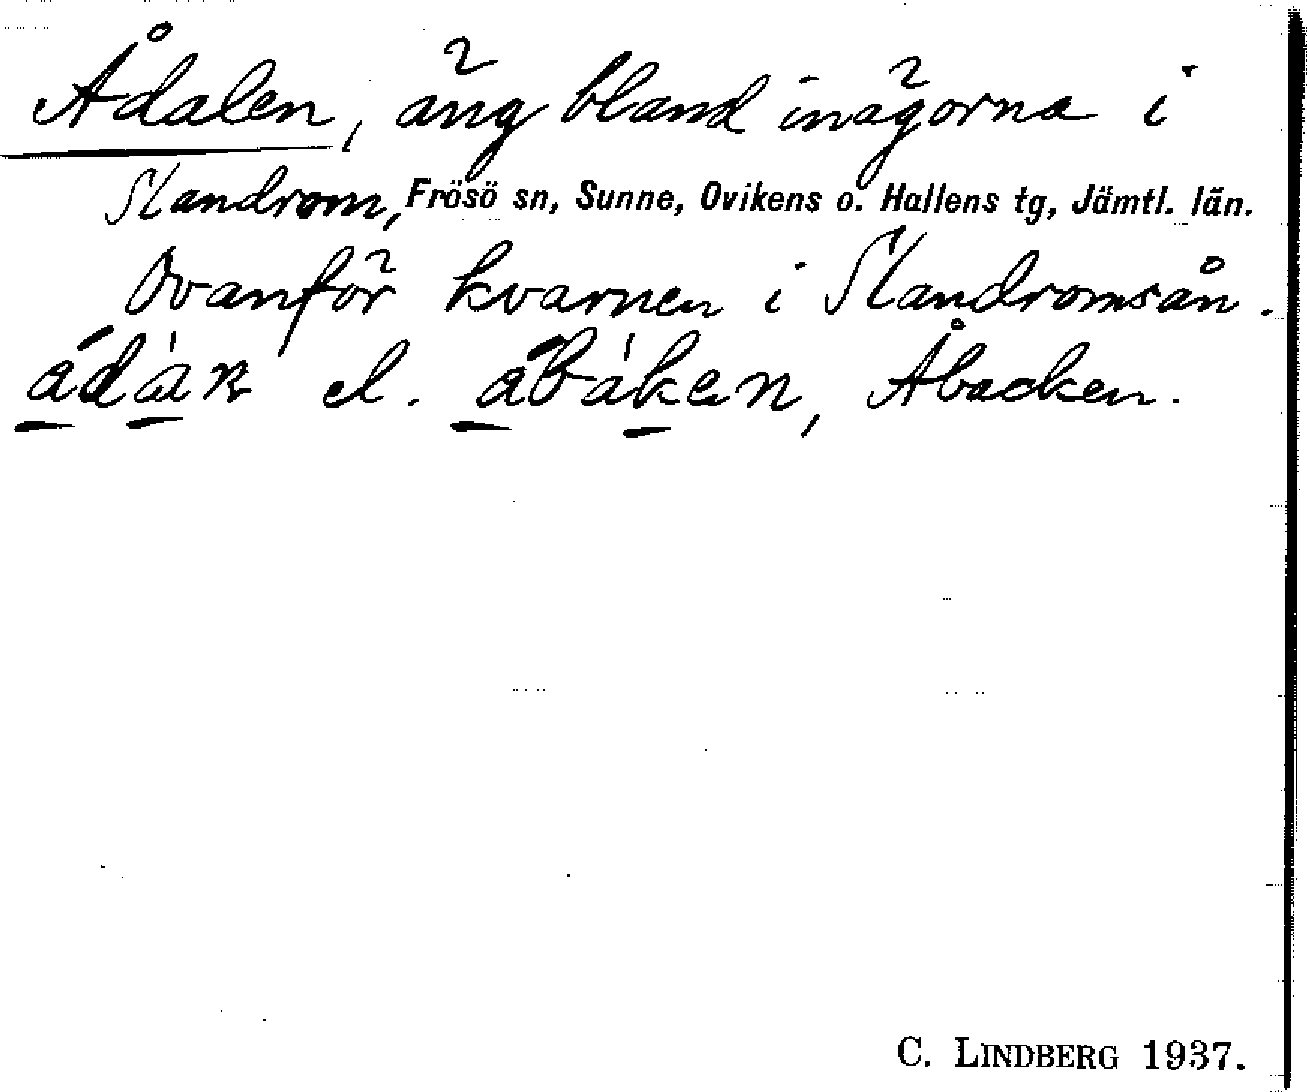 Ådalen, äng bland inägorna i
Slandrom, Frösö sn, Sunne, Ovikens o. Hallens tg, Jämtl. län.
Ovanför kvarnen i Slandromsån.
ådàn el. åbàken, Åbacken.
C. LINDBERG 1937.